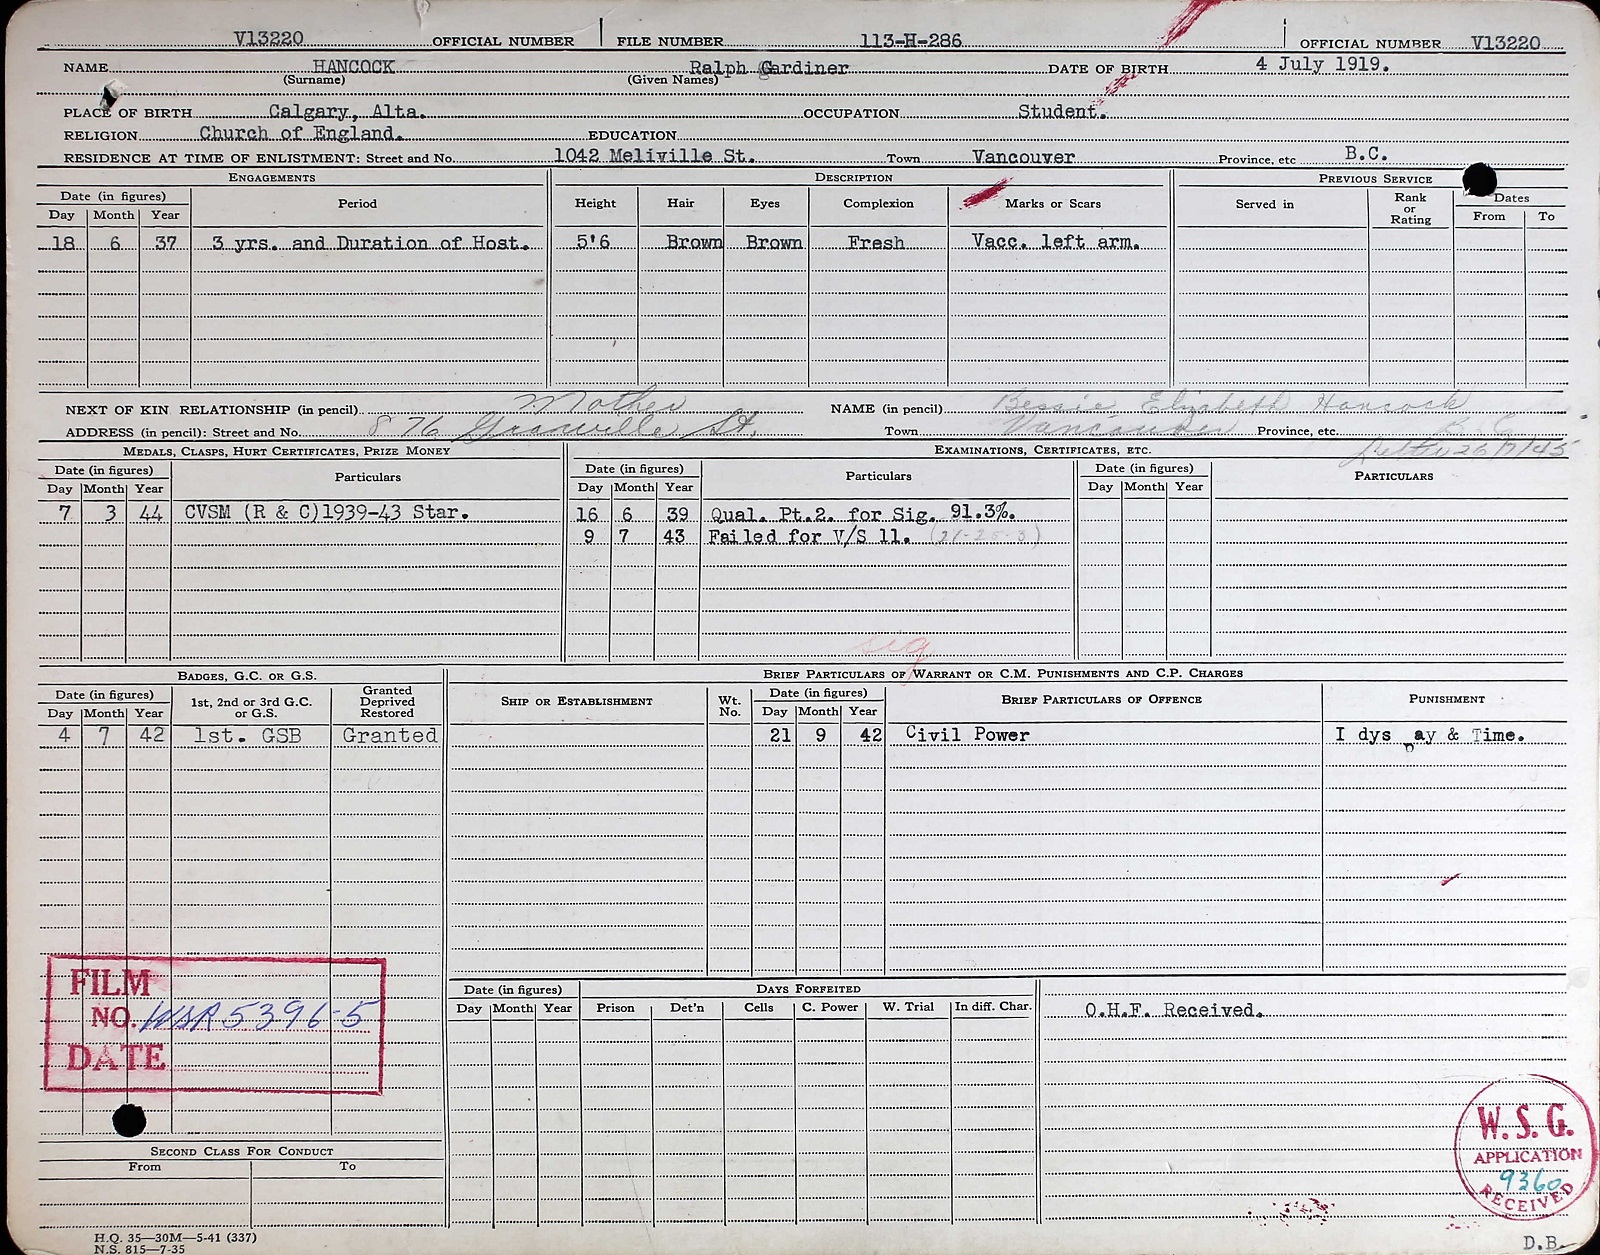 V13220 OFFICIAL NUMBER FILE NUMBER 113-H-286 OFFICIAL NUMBER V13220
NAME HANCOCK Ralph Gardiner DATE OF BIRTH 4 July 1919.
(Surname) (Given Names)
PLACE OF BIRTH Calgary, Alta. OCCUPATION Student.
RELIGION Church of England. EDUCATION
RESIDENCE AT TIME OF ENLISTMENT: Street and No. 1042 Meliville St. Town Vancouver Province, etc B.C.
ENGAGEMENTS DESCRIPTION PREVIOUS SERVICE
Date (in figures) Period Height Hair Eyes Complexion Marks or Scars Served in Rank or Rating Dates
Day Month Year From To
18 6 37 3 yrs. and Duration of Host. 5'6 Brown Brown Fresh Vacc. left arm.
NEXT OF KIN RELATIONSHIP (in pencil) Mother NAME (in pencil) Bessie Elizabeth Hancock
ADDRESS (in pencil): Street and No. 876 Granville St. Town Vancouver Province, etc. B.C.
Letter 26/7/45
MEDALS, CLASPS, HURT CERTIFICATES, PRIZE MONEY EXAMINATIONS, CERTIFICATES, ETC.
Date (in figures) Particulars Date (in figures) Particulars Date (in figures) PARTICULARS
Day Month Year Day Month Year Day Month Year
7 3 44 CVSM (R & C)1939-43 Star. 16 6 39 Qual. Pt.2. for Sig. 91.3%.
9 7 43 Failed for V/S 11.
sig
BADGES, G.C. OR G.S. BRIEF PARTICULARS OF WARRANT OR C.M. PUNISHMENTS AND C.P. CHARGES
Date (in figures) 1st, 2nd or 3rd G.C. or G.S. Granted Deprived Restored SHIP OR ESTABLISHMENT Wt. No. Date (in figures) BRIEF PARTICULARS OF OFFENCE PUNISHMENT
Day Month Year Day Month Year
4 7 42 1st. GSB Granted 21 9 42 Civil Power I dys pay & Time.
FILM
NO. WSR5396-5
DATE
Date (in figures) DAYS FORFEITED
Day Month Year Prison Det'n Cells C. Power W. Trial In diff. Char.
O.H.F. Received.
W.S.G.
APPLICATION
9360
RECEIVED
SECOND CLASS FOR CONDUCT
From To
H.Q. 35—30M—5-41 (337)
N.S. 815—7-35
D.B.